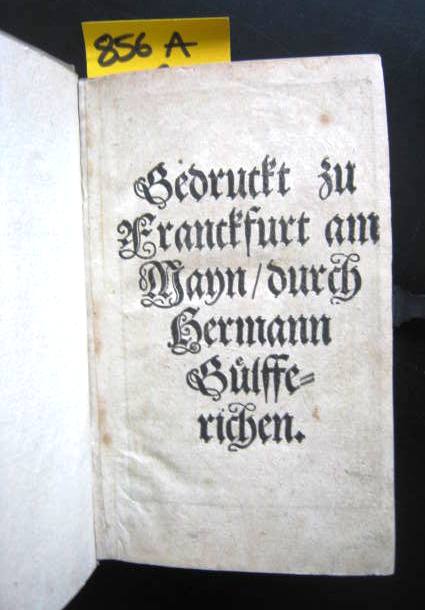 856 A
Gedruckt zu
Franckfurt am
Mayn / durch
Hermann
Gülffe⸗
richen.